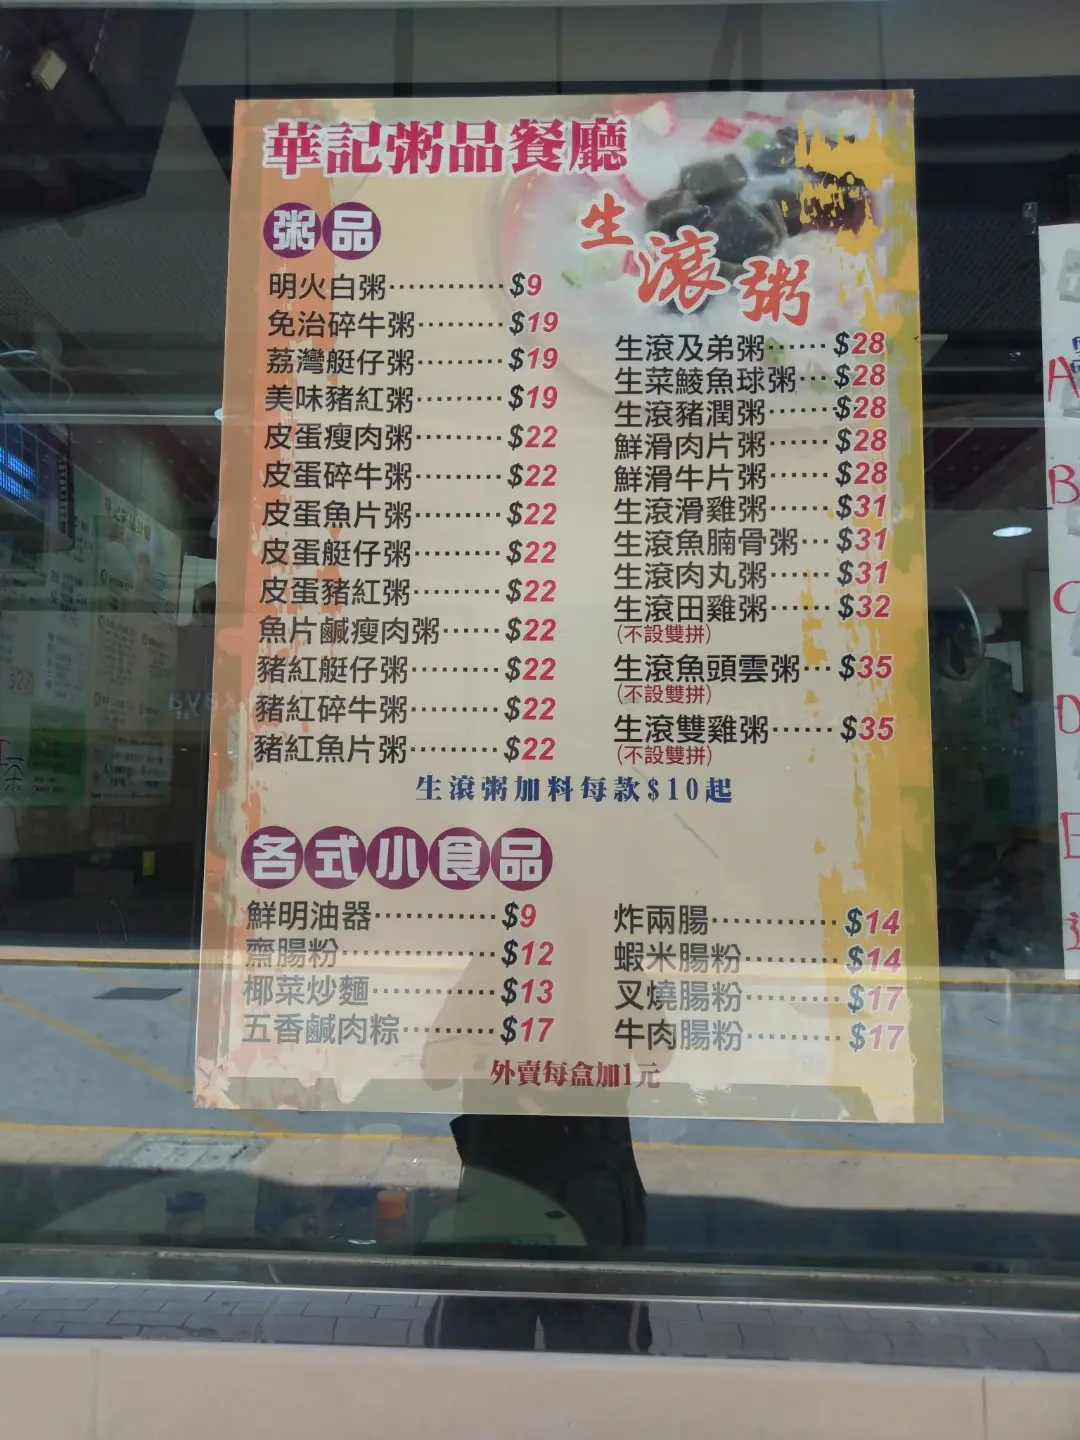 華記粥品餐廳
粥品
明火白粥············$9
免治碎牛粥·········$19
荔灣艇仔粥·········$19
美味豬紅粥·········$19
皮蛋瘦肉粥·········$22
皮蛋碎牛粥·········$22
皮蛋魚片粥·········$22
皮蛋艇仔粥·········$22
皮蛋豬紅粥·········$22
魚片鹹瘦肉粥······$22
豬紅艇仔粥·········$22
豬紅碎牛粥·········$22
豬紅魚片粥·········$22
生滾粥
生滾及弟粥······$28
生菜鯪魚球粥···$28
生滾豬潤粥······$28
鮮滑肉片粥······$28
鮮滑牛片粥······$28
生滾滑雞粥······$31
生滾魚腩骨粥···$31
生滾肉丸粥······$31
生滾田雞粥······$32
(不設雙拼)
生滾魚頭雲粥···$35
(不設雙拼)
生滾雙雞粥······$35
(不設雙拼)
生滾粥加料每款$10起
各式小食品
鮮明油器············$9
齋腸粉···············$12
椰菜炒麵············$13
五香鹹肉粽·········$17
炸兩腸············$14
蝦米腸粉·········$14
叉燒腸粉·········$17
牛肉腸粉·········$17
外賣每盒加1元
A
B
C
D
E
$27